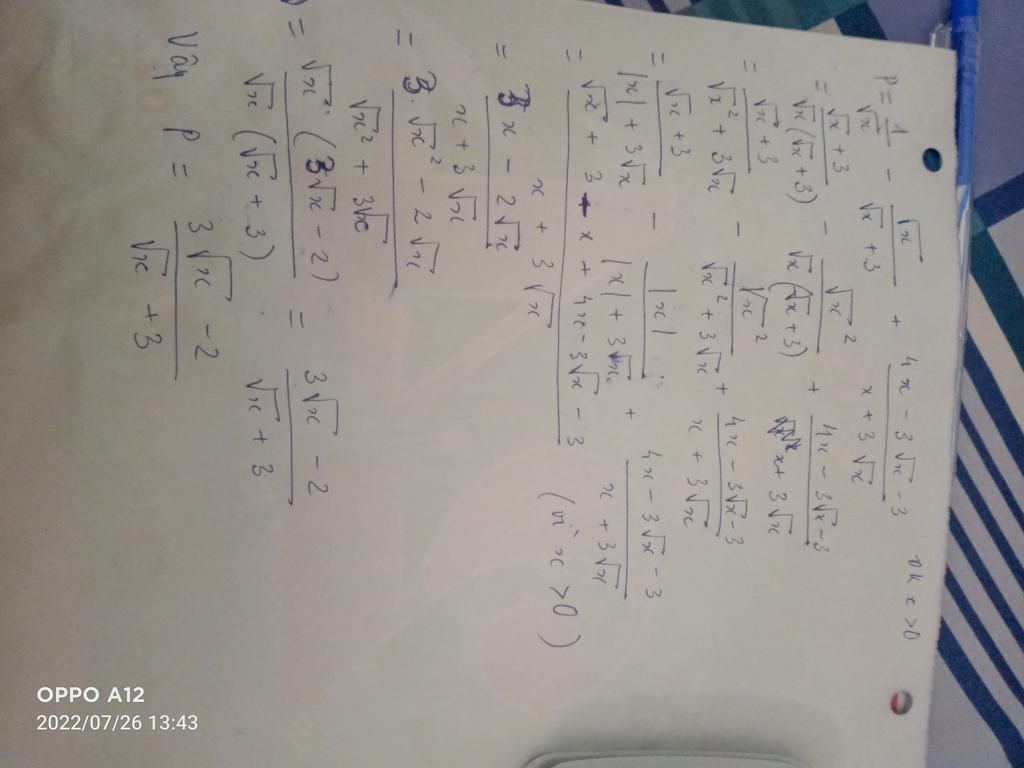 P = 1/√x - √x/(√x + 3) + (4x - 3√x - 3)/(x + 3√x) đk x > 0
= (√x + 3)/(√x(√x + 3)) - √x²/(√x(√x + 3)) + (4x - 3√x - 3)/(x + 3√x)
= (√x + 3)/(√x² + 3√x) - √x²/(√x² + 3√x) + (4x - 3√x - 3)/(x + 3√x)
= (√x + 3)/(|x| + 3√x) - |x|/(|x| + 3√x) + (4x - 3√x - 3)/(x + 3√x)
= (√x + 3 - x + 4x - 3√x - 3)/(x + 3√x) (vì x > 0)
= (3x - 2√x)/(x + 3√x)
= (3.√x² - 2√x)/(√x² + 3√x)
= √x(3√x - 2)/(√x(√x + 3)) = (3√x - 2)/(√x + 3)
Vậy P = (3√x - 2)/(√x + 3)
OPPO A12
2022/07/26 13:43